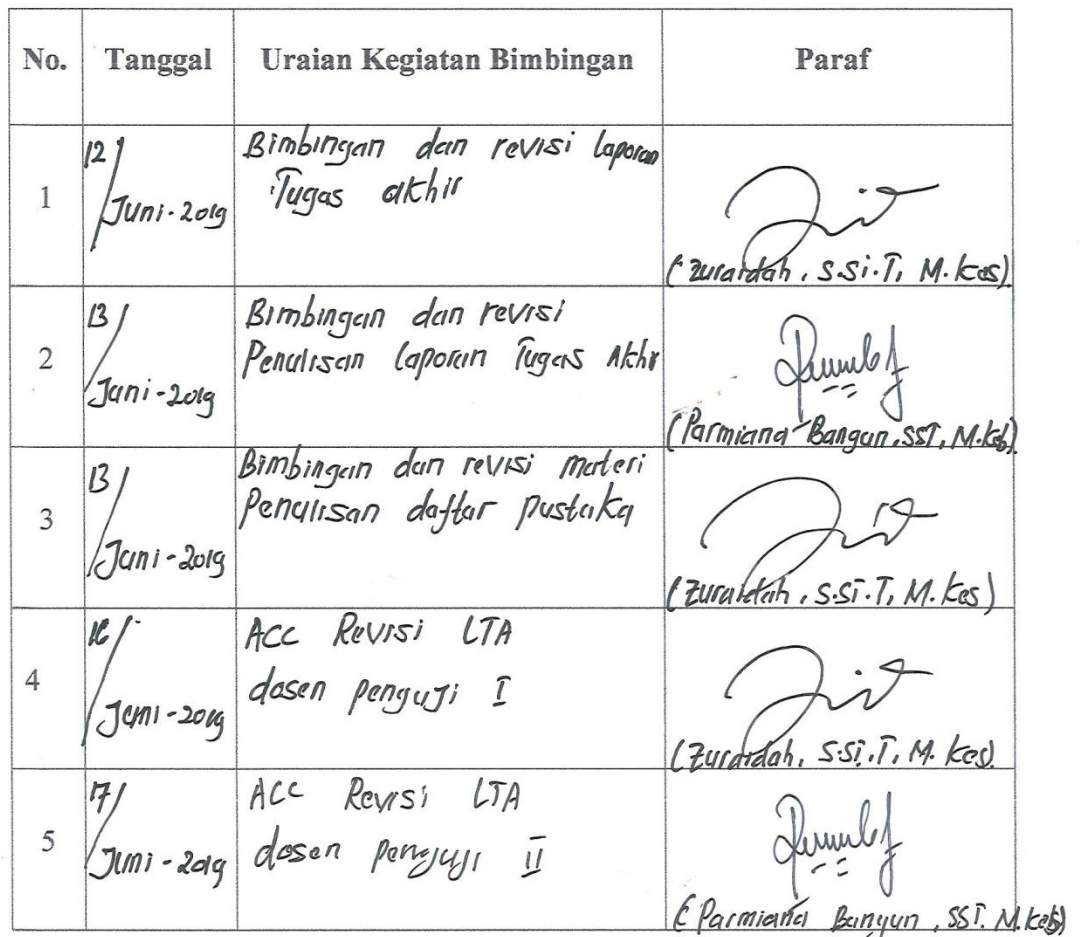 No. Tanggal Uraian Kegiatan Bimbingan Paraf
1 12/ Juni-2019 Bimbingan dan revisi laporan
Tugas akhir
(Zuraidah, S.Si.T, M.Kes)
2 13/ Juni-2019 Bimbingan dan revisi
Penulisan laporan Tugas Akhir
(Parmiana Bangun, SST, M.Keb)
3 13/ Juni-2019 Bimbingan dan revisi materi
Penulisan daftar pustaka
(Zuraidah, S.Si.T, M.Kes)
4 Juni-2019 ACC Revisi LTA
dosen penguji I
(Zuraidah, S.Si.T, M.Kes)
5 17/ Juni-2019 ACC Revisi LTA
dosen penguji II
(Parmiana Bangun, SST. M.Keb)